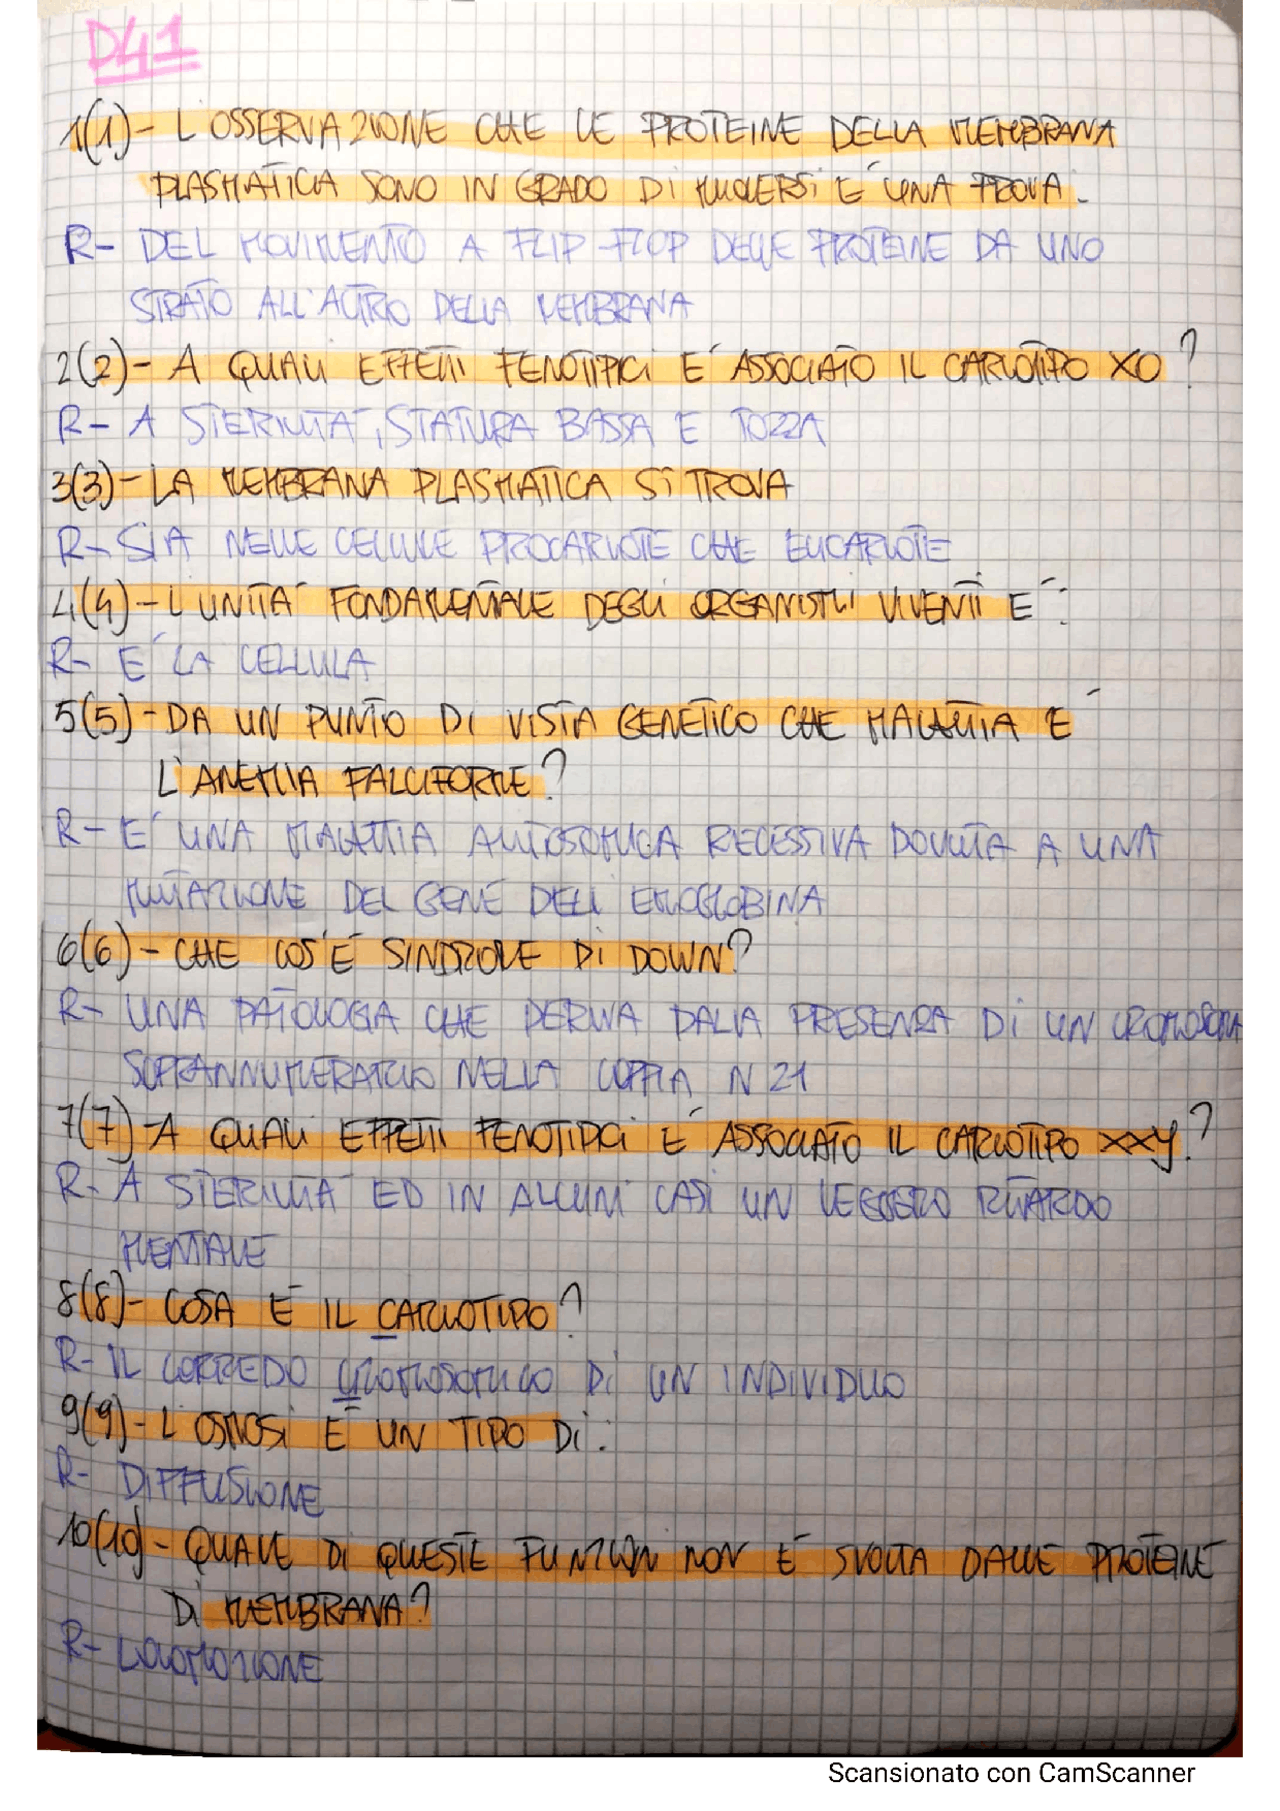 D41
1(1)- L'OSSERVAZIONE CHE LE PROTEINE DELLA MEMBRANA
PLASMATICA SONO IN GRADO DI MUOVERSI E' UNA PROVA:
R- DEL MOVIMENTO A FLIP-FLOP DELLE PROTEINE DA UNO
STRATO ALL'ALTRO DELLA MEMBRANA
2(2)- A QUALI EFFETTI FENOTIPICI E' ASSOCIATO IL CARIOTIPO XO?
R- A STERILITA', STATURA BASSA E TOZZA
3(3)- LA MEMBRANA PLASMATICA SI TROVA
R- SIA NELLE CELLULE PROCARIOTE CHE EUCARIOTE
4(4)- L'UNITA' FONDAMENTALE DEGLI ORGANISMI VIVENTI E':
R- E' LA CELLULA
5(5)- DA UN PUNTO DI VISTA GENETICO CHE MALATTIA E'
L'ANEMIA FALCIFORME?
R- E' UNA MALATTIA AUTOSOMICA RECESSIVA DOVUTA A UNA
MUTAZIONE DEL GENE DELL'EMOGLOBINA
6(6)- CHE COS'E' SINDROME DI DOWN?
R- UNA PATOLOGIA CHE DERIVA DALLA PRESENZA DI UN CROMOSOMA
SOPRANNUMERARIO NELLA COPPIA N 21
7(7)- A QUALI EFFETTI FENOTIPICI E' ASSOCIATO IL CARIOTIPO XXY?
R- A STERILITA' ED IN ALCUNI CASI UN LEGGERO RITARDO
MENTALE
8(8)- COSA E' IL CARIOTIPO?
R- IL CORREDO CROMOSOMICO DI UN INDIVIDUO
9(9)- L'OSMOSI E' UN TIPO DI:
R- DIFFUSIONE
10(10)- QUALE DI QUESTE FUNZIONI NON E' SVOLTA DALLE PROTEINE
DI MEMBRANA?
R- LOCOMOZIONE
Scansionato con CamScanner